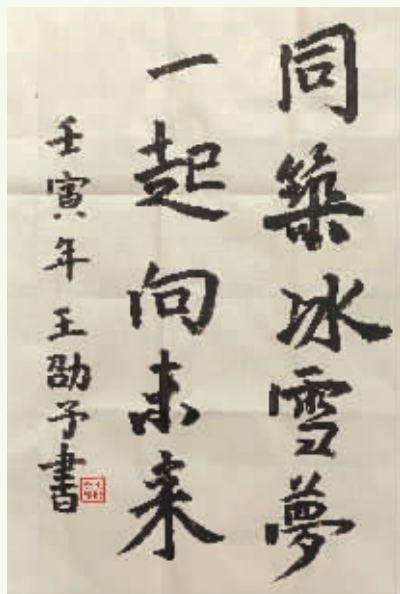 同築冰雪夢
一起向未来
壬寅年王劭予書